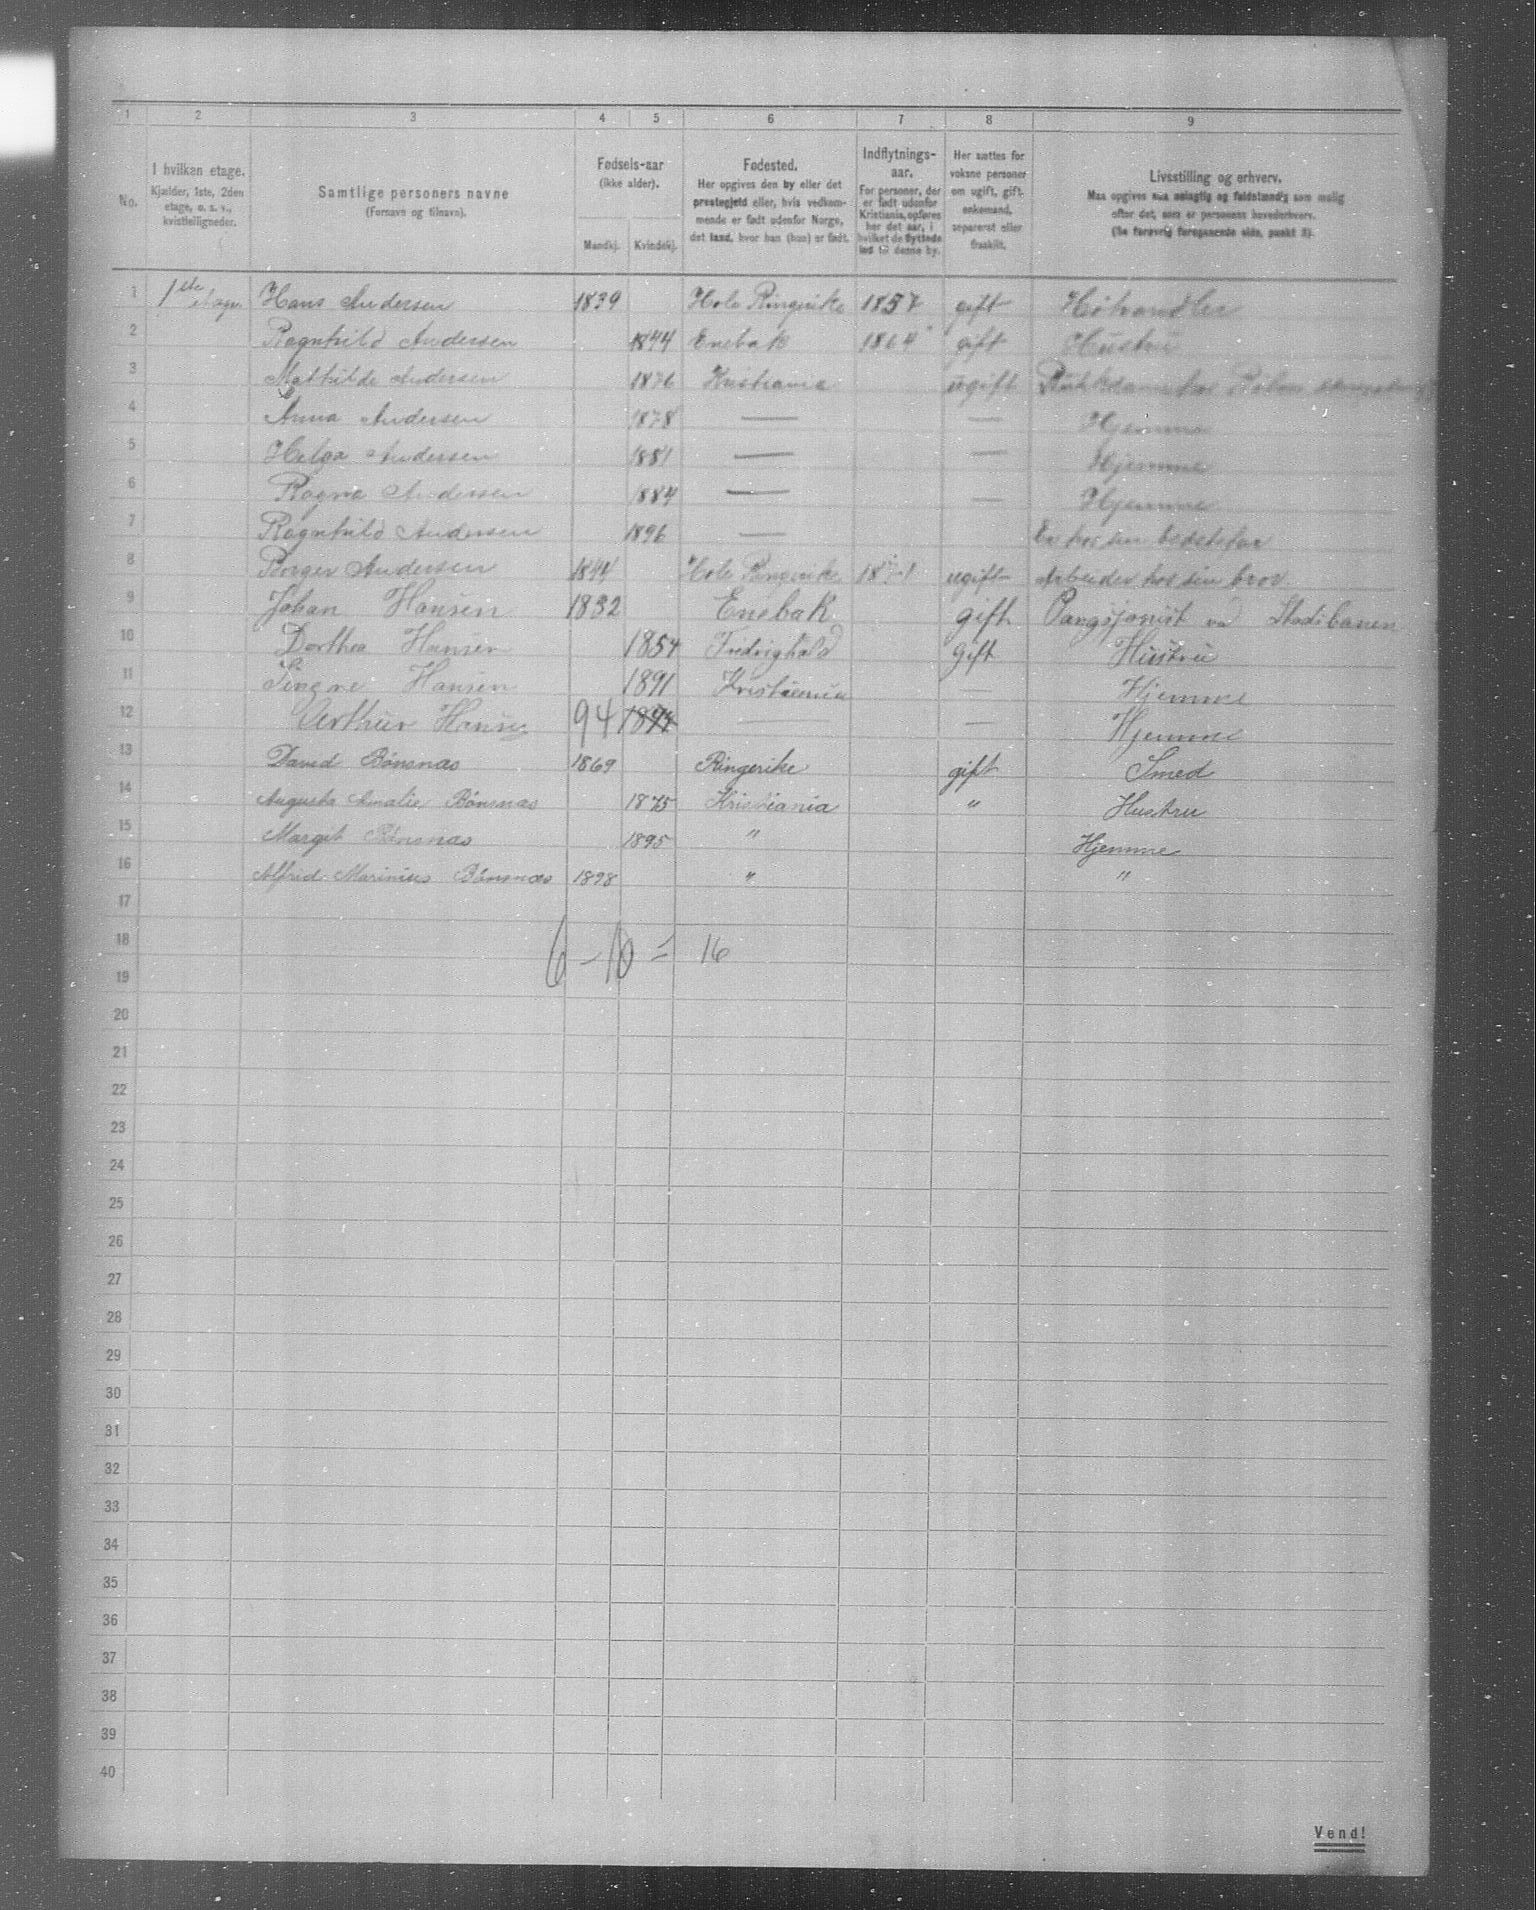 1 2 3 4 5 6 7 8 9
No.
I hvilken etage.
Kjælder, 1ste, 2den
etage, o. s. v.,
kvistleiligheder.
Samtlige personers navne
(Fornavn og tilnavn).
Fødsels-aar
(ikke alder).
Mandkj. Kvindekj.
Fødested.
Her opgives den by eller det
prestegjeld eller, hvis vedkom-
mende er født udenfor Norge,
det land, hvor han (hun) er født.
Indflytnings-
aar.
For personer, der
er født udenfor
Kristiania, opføres
her det aar, i
hvilket de flyttede
ind til denne by.
Her sættes for
voksne personer
om ugift, gift,
enkemand,
separeret eller
fraskilt.
Livsstilling og erhverv.
Maa opgives saa nøiagtig og fuldstændig som mulig
efter det, som er personens hovederhverv.
(Se forøvrig foregaaende side, punkt 3).
1 1ste etage Hans Andersen 1839 Hole Ringerike 1857 gift Høhandler
2 Ragnhild Andersen 1844 Enebak 1864 gift Hustru
3 Mathilde Andersen 1876 Kristiania ugift hos
4 Anna Andersen 1878 — — Hjemme
5 Helga Andersen 1881 — — Hjemme
6 Ragna Andersen 1884 — — Hjemme
7 Ragnhild Andersen 1896 — Er hos sin bedstefar
8 Borger Andersen 1844 Hole Ringerike 1871 ugift Arbeider hos sin bror
9 Johan Hansen 1832 Enebak gift Pangsjonist Hovedbanen
10 Dorthea Hansen 1854 Fredrighald Gift Hustru
11 Singne Hansen 1891 Kristiania — Hjemme
12 Arthur Hansen 94 1894 — — Hjemme
13 David Bönsnas 1869 Ringerike gift Smed
14 Augusta Amalie Bönsnas 1875 Kristiania " Hustru
15 Margit Bönsnas 1895 " Hjemme
16 Alfred Marinius Bönsnas 1898 " "
17
18 6 – 10 = 16
19
20
21
22
23
24
25
26
27
28
29
30
31
32
33
34
35
36
37
38
39
40
Vend!